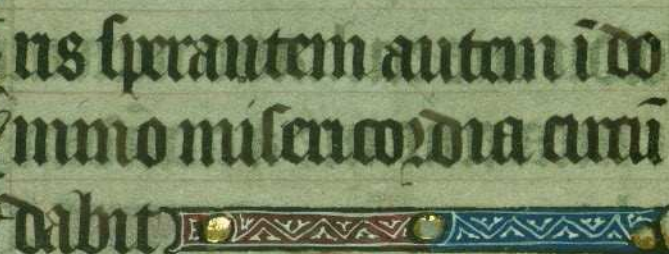 ris sperantem autem ī do
mino misericordia circū
dabit